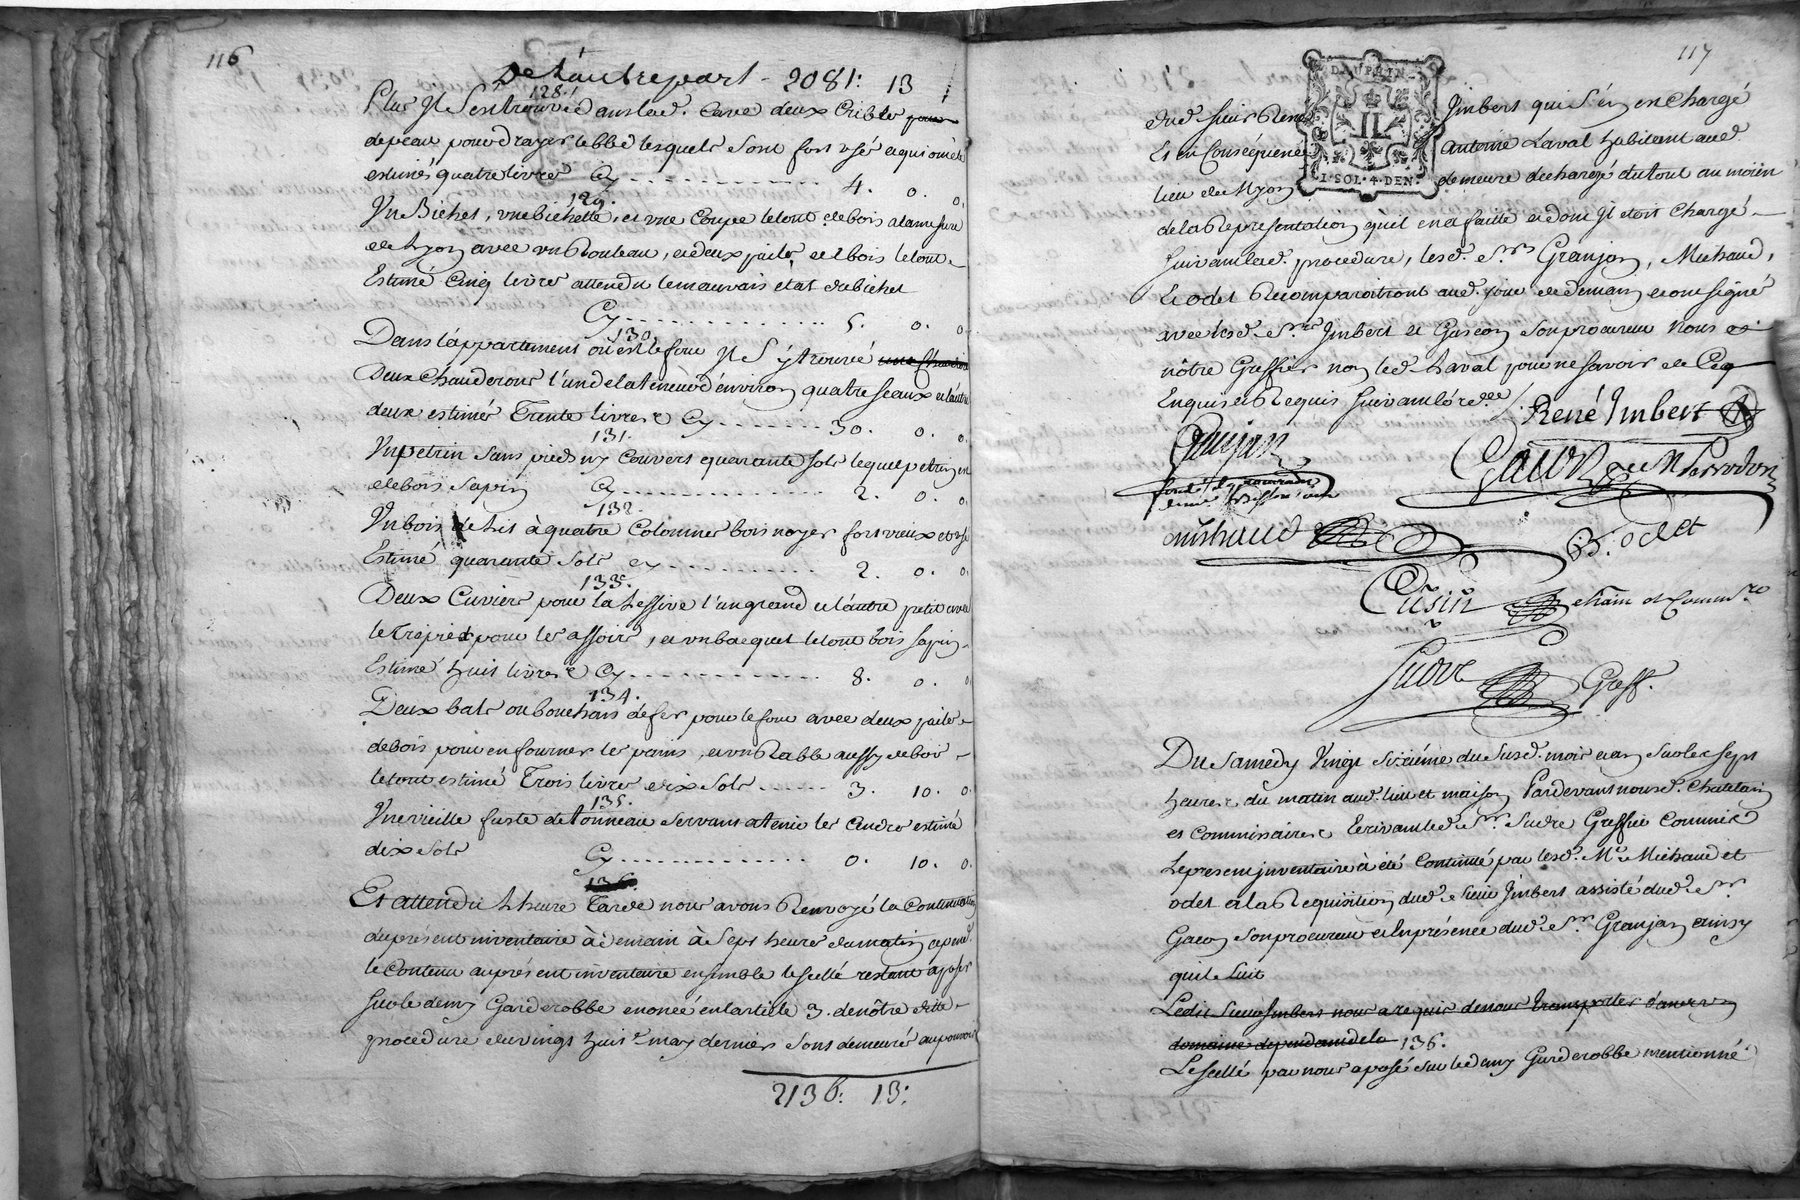 116
De l'autre part - 2081: 13
128.
Plus Il s'est trouvé dans lad. Cave deux Cribles pour
de peau pour drayer le bled lesquels sont fort usés
estimés quatre livres Cy 4. 0. 0.
129.
Un Bichet, une bichette, et une Coupe le tout de bois a la mesure
de Lyon avec un Rouleau, et deux pailes de bois le tout
Estimé Cinq livres attendu le mauvais état du bichet
Cy 5. 0. 0
130.
Dans l'appartement où est le four Il s'y trouvé une Chaudron
Deux Chauderons l'un de la teneur d'environ quatre seaux et l'autre
deux estimés Trente livres Cy 30. 0. 0.
131.
Un petrin sans pieds ny Couvert quarante sols lequel petrin est
de bois sapin Cy 2. 0. 0
132.
Un bois de Lit à quatre Colonnes bois noyer fort vieux et usé
Estimé quarante sols Cy 2. 0. 0.
133.
Deux Cuviers pour la Lessive l'un grand et l'autre petit avec
le trepied pour les assoire, et un bacquet le tout bois sapin
Estimé huit livres Cy 8. 0. 0
134.
Deux bats ou bouchais de fer pour le four avec deux pailes
de bois pour enfourner les pains, et un Rable aussy de bois
le tout estimé Trois livres dix sols 3. 10. 0
135.
Une vieille fuste de tonneau servant a tenir les Cendres estimé
dix sols Cy 0. 10. 0.
136.
Et attendu L'heure Tarde nous avons Renvoyé la Continuation
du présent inventaire à demain à Sept heures du matin cepend.
le Contenu au présent inventaire ensemble le scellé restant aposé
sur le demy Garderobbe enoncé en l'article 3. de nôtre dite
procedure du vingt huit may dernier sont demeurés au pouvoir
2136: 13:
117
DAUPHINÉ
II
1·SOL·4·DEN·
dud. sieur René Imbert qui s'en est Chargé
Et en Conséquence Antoine Laval habitant aud
lieu de Myon demeure déchargé du tout au moïen
de la Representation qu'il en a faitte et dont Il etoit Chargé
suivant lad. procedure, lesd. Srs Granjon, Michaud,
et odet Recomparoitront aud. jour de demain et ont signé
avec lesd. Srs Imbert et Gascon son procureur Nous et
nôtre Greffier non led. Laval pour ne savoir de Ce
Enquis et Requis suivant l'ord.ce
René Imbert
Granjon
Michaud
B. odet
Cusin chatn et Commre
Sudre Greff.
Du Samedy Vingt sixiéme du susd. mois et an sur les sept
heures du matin aud. lieu et maison Pardevant nousd. Chatelain
et Commissaire Ecrivant led. Sr. Sudre Greffier Commis
Le present inventaire à été Continué par lesd. Mr. Michaud et
odet et la Requisition dud. sieur Imbert assisté dud. Sr
Gacon son procureur et En présence dud. Sr. Granjon ainsy
quil suit
Ledit Sieur Imbert nous a requis de nous transporter dans un
domaine dependant de la 136.
Le scellé par nous aposé sur le demy Garderobbe mentionné